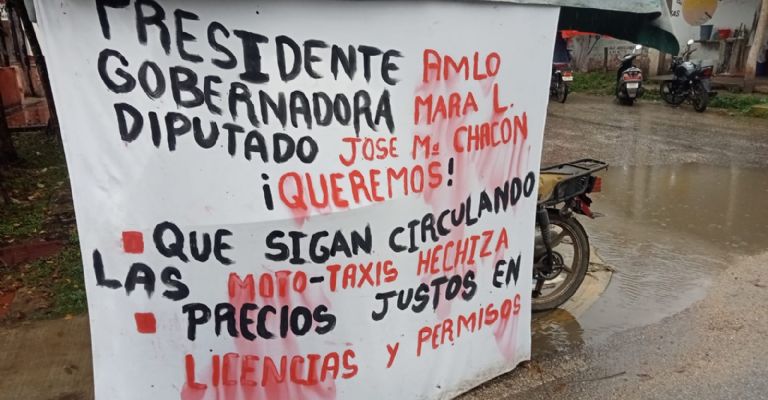 PRESIDENTE AMLO
GOBERNADORA MARA L.
DIPUTADO JOSE Mª CHACON
¡QUEREMOS!
QUE SIGAN CIRCULANDO
LAS MOTO-TAXIS HECHIZA
PRECIOS JUSTOS EN
LICENCIAS Y PERMISOS